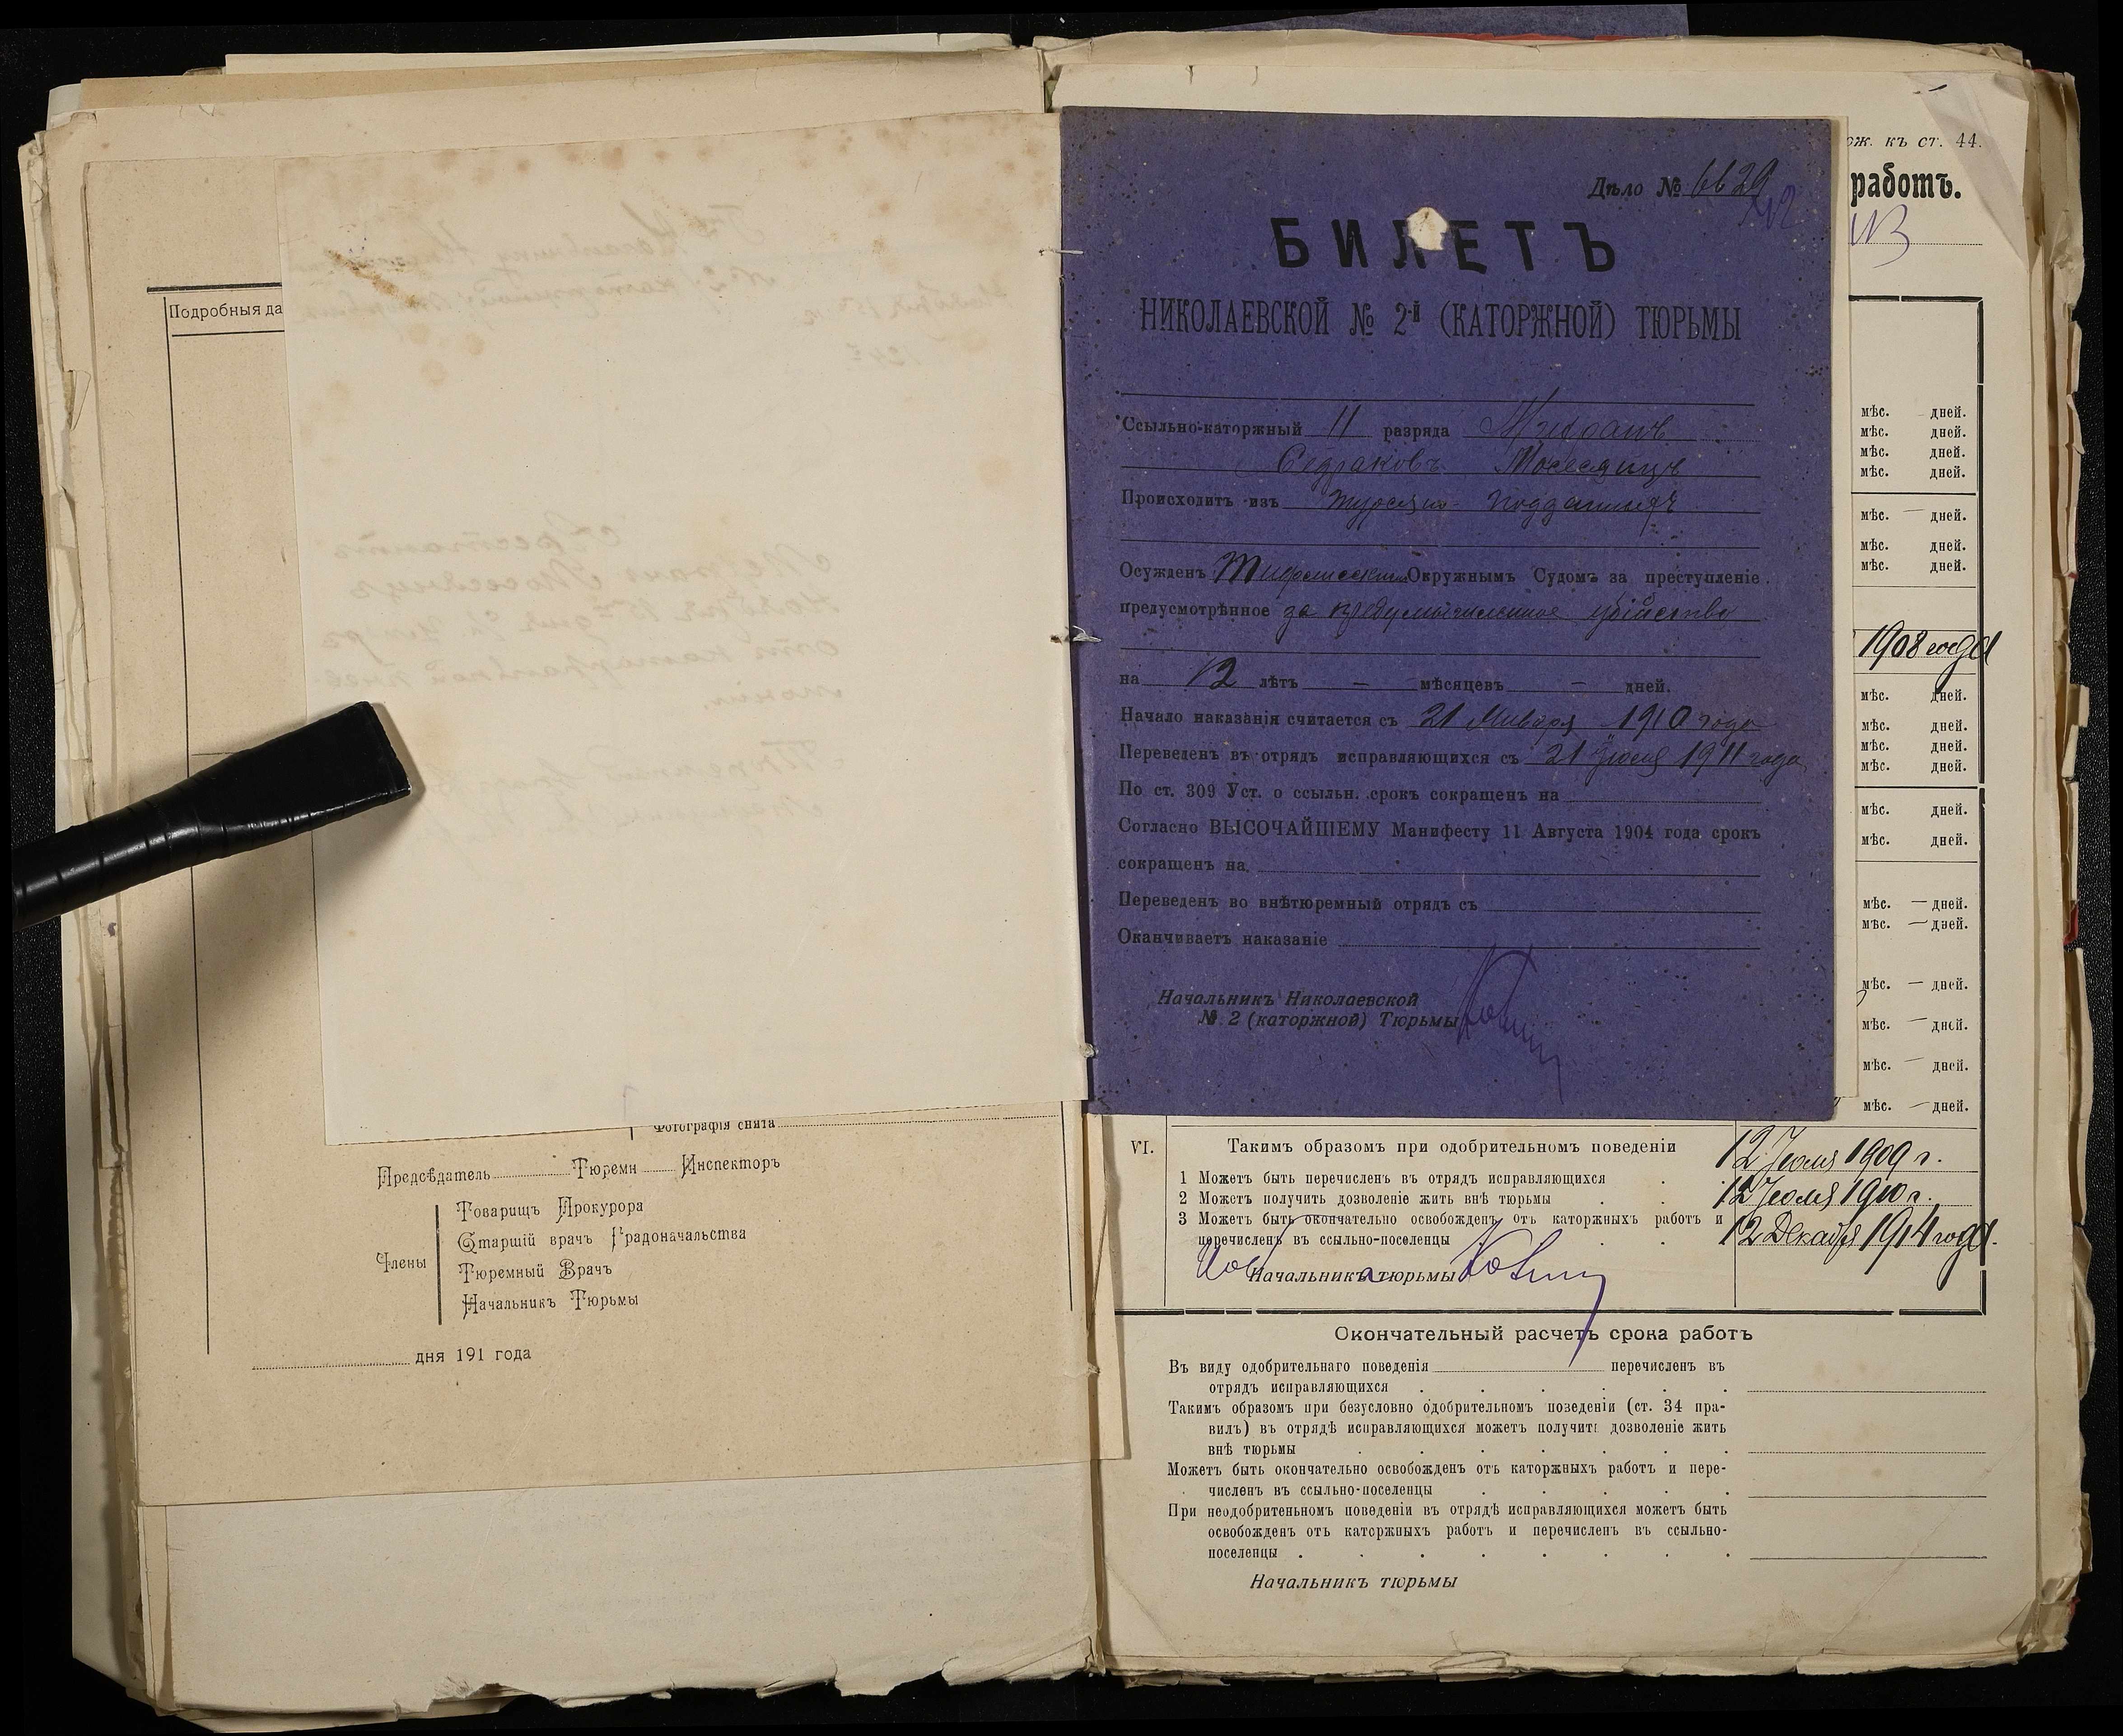 Подробныя да
Фотографія снята
Предсѣдатель Тюремн Инспекторъ
Члены
Товарищъ Прокурора
Старшій врачъ Градоначальства
Тюремный Врачъ
Начальникъ Тюрьмы
дня 191 года
Дѣло № 6629
БИЛЕТЪ
НИКОЛАЕВСКОЙ № 2-й (КАТОРЖНОЙ) ТЮРЬМЫ
Ссыльно-каторжный II разряда
Седраковъ Мосесянцъ
Происходитъ изъ подданныхъ
Осужденъ Тифлисскимъ Окружнымъ Судомъ за преступленіе
предусмотрѣнное за предумышленное убійство
на 12 лѣтъ — мѣсяцевъ — дней.
Начало наказанія считается съ 21 Января 1910 года
Переведенъ въ отрядъ исправляющихся съ 21 1911 года
По ст. 309 Уст. о ссыльн. срокъ сокращенъ на
Согласно ВЫСОЧАЙШЕМУ Манифесту 11 Августа 1904 года срокъ
сокращенъ на
Переведенъ во внѣтюремный отрядъ съ
Оканчиваетъ наказаніе
Начальникъ Николаевской
№ 2 (каторжной) Тюрьмы
ож. къ ст. 44.
работъ.
мѣс. дней.
мѣс. дней.
мѣс. дней.
мѣс. дней.
мѣс. — дней.
мѣс. дней.
мѣс. дней.
1908 года
мѣс. дней.
мѣс. дней.
мѣс. дней.
мѣс. дней.
мѣс. дней.
мѣс. дней.
мѣс. — дней.
мѣс. — дней.
мѣс. — дней.
мѣс. — дней.
мѣс. — дней.
мѣс. — дней.
VI. Такимъ образомъ при одобрительномъ поведеніи
1 Можетъ быть перечисленъ въ отрядъ исправляющихся 12 Іюля 1909 г.
2 Можетъ получить дозволеніе жить внѣ тюрьмы 12 Іюля 1910 г.
3 Можетъ быть окончательно освобожденъ отъ каторжныхъ работъ и
перечисленъ въ ссыльно-поселенцы 12 Декабря 1914 года.
Начальникъ тюрьмы
Окончательный расчетъ срока работъ
Въ виду одобрительнаго поведенія перечисленъ въ
отрядъ исправляющихся
Такимъ образомъ при безусловно одобрительномъ поведеніи (ст. 34 пра-
вилъ) въ отрядѣ исправляющихся можетъ получить дозволеніе жить
внѣ тюрьмы
Можетъ быть окончательно освобожденъ отъ каторжныхъ работъ и пере-
численъ въ ссыльно-поселенцы
При неодобрительномъ поведеніи въ отрядѣ исправляющихся можетъ быть
освобожденъ отъ каторжныхъ работъ и перечисленъ въ ссыльно-
поселенцы
Начальникъ тюрьмы